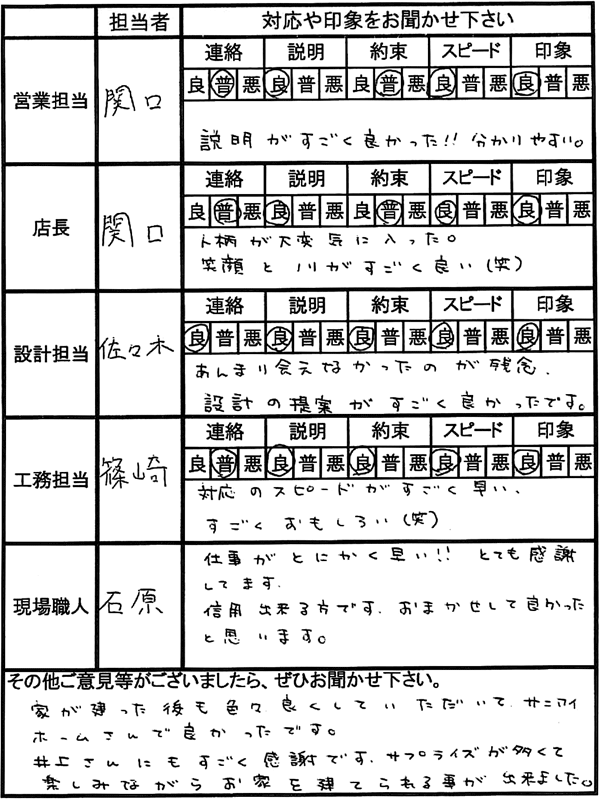 担当者 対応や印象をお聞かせ下さい
連絡 説明 約束 スピード 印象
営業担当 関口 良普悪 良普悪 良普悪 良普悪 良普悪
説明がすごく良かった!! 分かりやすい。
連絡 説明 約束 スピード 印象
店長 関口 良普悪 良普悪 良普悪 良普悪 良普悪
人柄が大変気に入った。
笑顔とノリがすごく良い(笑)
連絡 説明 約束 スピード 印象
設計担当 佐々木 良普悪 良普悪 良普悪 良普悪 良普悪
あんまり会えなかったのが残念.
設計の提案がすごく良かったです。
連絡 説明 約束 スピード 印象
工務担当 篠崎 良普悪 良普悪 良普悪 良普悪 良普悪
対応のスピードがすごく早い、
すごくおもしろい(笑)
仕事がとにかく早い!! とても感謝
してます.
現場職人 石原
信用出来る方です. おまかせして良かった
と思います。
その他ご意見等がございましたら、ぜひお聞かせ下さい。
家が建った後も色々良くしていただいて、サンアイ
ホームさんで良かったです。
井上さんにもすごく感謝です. サプライズが多くて
楽しみながらお家を建てられる事が出来ました。